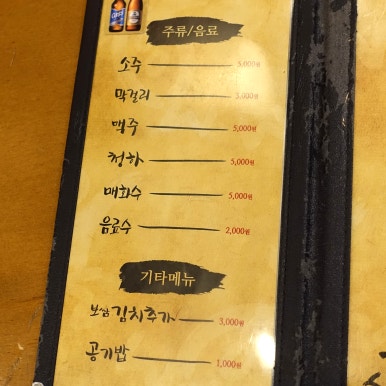 주류/음료
소주 5,000원
막걸리 5,000원
맥주 5,000원
청하 5,000원
매화수 5,000원
음료수 2,000원
기타메뉴
보쌈김치추가 3,000원
공기밥 1,000원